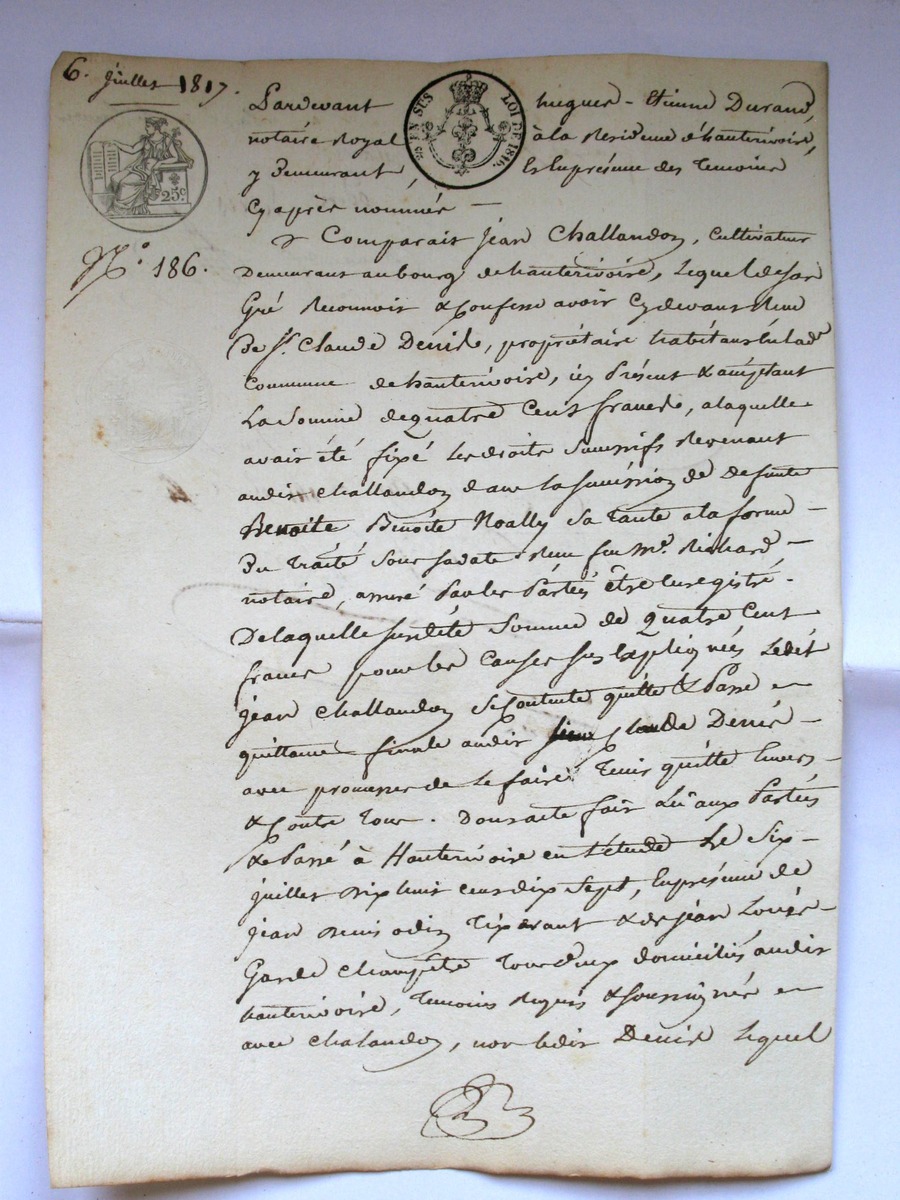 6. juillet 1817.
25c.
EN SUS LOI DE 1816.
N.° 186.
Pardevant hugues - Etienne Durand,
notaire Royal à la Residence d'hauterivoire,
y Demeurant, En la présence des Temoins
Cy après nommés —
Comparait jean Challandon, Cultivateur
Demeurant au bourg de hauterivoire, Lequel de son
Gré Reconnoit & Confesse avoir Cy devant Reçu
De Sr. Claude Denis, propriétaire habitant en lade
Commune de hauterivoire, icy Présent & acceptant
La Somme de quatre Cent francs, a laquelle
avait été fixé Les droits Successifs Revenant
audit Challandon dans la succession de defunte
Benoite Benoite Noally sa Tante a la forme —
Du Traité Sous sa date Reçu feu Me. Richard —
notaire, assuré Par les Parties être Enregistré -
De laquelle susdite Somme de quatre Cent
francs pour les Causes sus Expliquées Ledit
jean Challandon se Contente quitte & Passe en
quittance finale audit Claude Denis —
avec promesses de Le faire Tenir quitte Envers —
& Contre Tous. Dont acte fait Lu aux Parties
& Passé à Hauterivoire en L'étude Le Six —
juillet dix huit cent dix Sept, En présence de
jean odin Tixerant & de jean Louis —
Garde Champêtre Tous deux domiciliés audit
hauterivoire, Temoins Requis & soussignés en
avec Chalandon, non ledit Denis Lequel